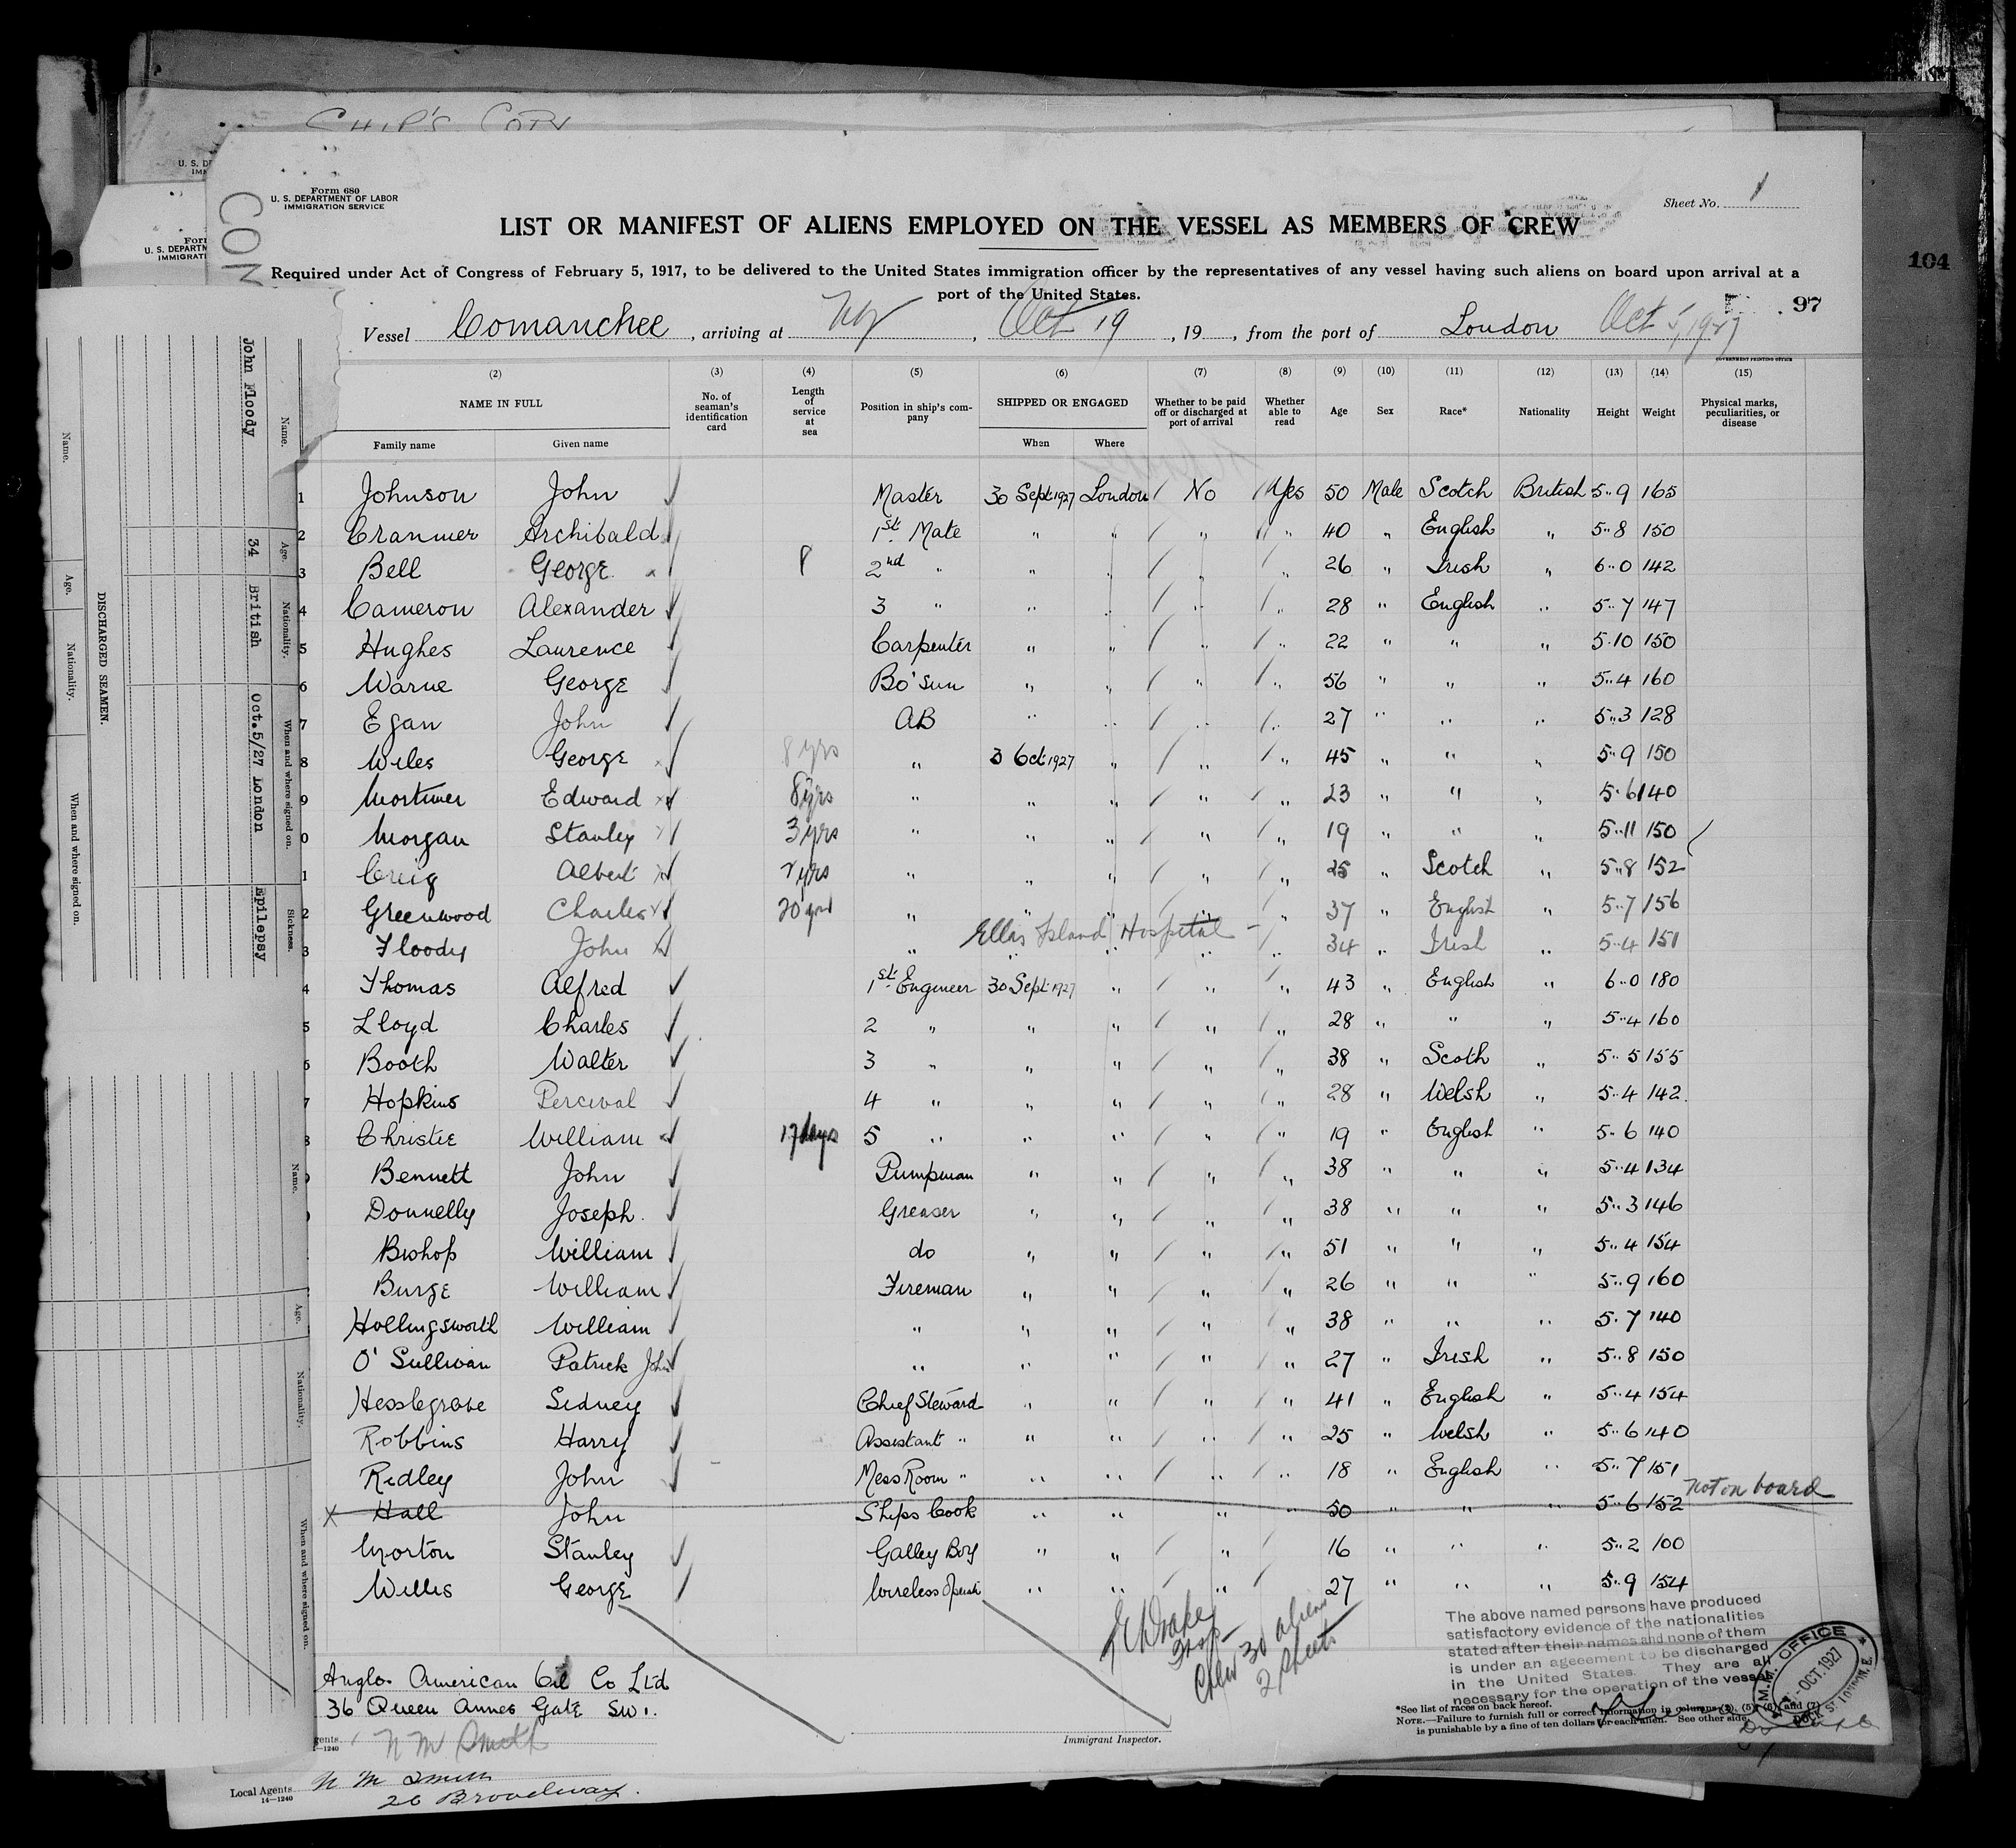 SHIP'S COPY
Form 680
U. S. DEPARTMENT OF LABOR
IMMIGRATION SERVICE
Sheet No. 1
LIST OR MANIFEST OF ALIENS EMPLOYED ON THE VESSEL AS MEMBERS OF CREW
104
Required under Act of Congress of February 5, 1917, to be delivered to the United States immigration officer by the representatives of any vessel having such aliens on board upon arrival at a
port of the United States.
97
Vessel Comanchee, arriving at NY, Oct 19, 19, from the port of London Oct 5, 1927
GOVERNMENT PRINTING OFFICE
(2) (3) (4) (5) (6) (7) (8) (9) (10) (11) (12) (13) (14) (15)
NAME IN FULL Family name Given name No. of seaman's identification card Length of service at sea Position in ship's company SHIPPED OR ENGAGED When Where Whether to be paid off or discharged at port of arrival Whether able to read Age Sex Race* Nationality Height Weight Physical marks, peculiarities, or disease
1 Johnson John Master 30 Sept 1927 London No Yes 50 Male Scotch British 5"9 165
2 Cranmer Archibald 1st Mate " " " " 40 " English " 5"8 150
3 Bell George 8 2nd " " " " " 26 " Irish " 6"0 142
4 Cameron Alexander 3 " " " " " 28 " English " 5"7 147
5 Hughes Laurence Carpenter " " " " 22 " " " 5"10 150
6 Warne George Bo'sun " " " " 56 " " " 5"4 160
7 Egan John AB " " " " 27 " " " 5"3 128
8 Wiles George 8 yrs " 3 Oct 1927 " " " 45 " " " 5"9 150
9 Mortimer Edward 8 yrs " " " " " 23 " " " 5"6 140
0 Morgan Stanley 3 yrs " " " " " 19 " " " 5"11 150
1 Creig Albert 2 yrs " " " " " 25 " Scotch " 5"8 152
2 Greenwood Charles 20 yrs " " " " " 37 " English " 5"7 156
3 Floody John " Ellis Island Hospital " " " " 34 " Irish " 5"4 151
4 Thomas Alfred 1st Engineer 30 Sept 1927 " " " 43 " English " 6"0 180
5 Lloyd Charles 2 " " " " " 28 " " " 5"4 160
6 Booth Walter 3 " " " " " 38 " Scoth " 5"5 155
7 Hopkins Percival 4 " " " " " 28 " Welsh " 5"4 142
8 Christie William 17 days 5 " " " " " 19 " English " 5"6 140
Bennett John Pumpman " " " " 38 " " " 5"4 134
Donnelly Joseph Greaser " " " " 38 " " " 5"3 146
Bishop William do " " " " 51 " " " 5"4 154
Burge William Fireman " " " " 26 " " " 5"9 160
Hollingsworth William " " " " " 38 " " " 5"7 140
O'Sullivan Patrick John " " " " " 27 " Irish " 5"8 150
Hesslegrave Sidney Chief Steward " " " " 41 " English " 5"4 154
Robbins Harry Assistant " " " " " 25 " Welsh " 5"6 140
Ridley John Mess Room " " " " " 18 " English " 5"7 151
X Hall John Ships Cook " " " " 50 " " " 5"6 152 not on board
Morton Stanley Galley Boy " " " 16 " " " 5"2 100
Willis George Wireless Operat " " " 27 " " " 5"9 154
Crew 30 aliens
2 sheets
The above named persons have produced
satisfactory evidence of the nationalities
stated after their names and none of them
is under an ageeement to be discharged
in the United States. They are all
necessary for the operation of the vessel
M.M. OFFICE
OCT. 1927
DOCK ST. LONDON. E.
Anglo American Oil Co Ltd
36 Queen Annes Gate SW1.
N M Smith
gents
Immigrant Inspector.
*See list of races on back hereof.
NOTE.—Failure to furnish full or correct information in columns (3), (5), (6), and (7)
is punishable by a fine of ten dollars for each alien. See other side.
Local Agents N M Smith
14—1240
26 Broadway.
DISCHARGED SEAMEN.
Name. Age. Nationality. When and where signed on. Sickness.
John Floody 34 British Oct.5/27 London Epilepsy
Name. Age. Nationality. When and where signed on.